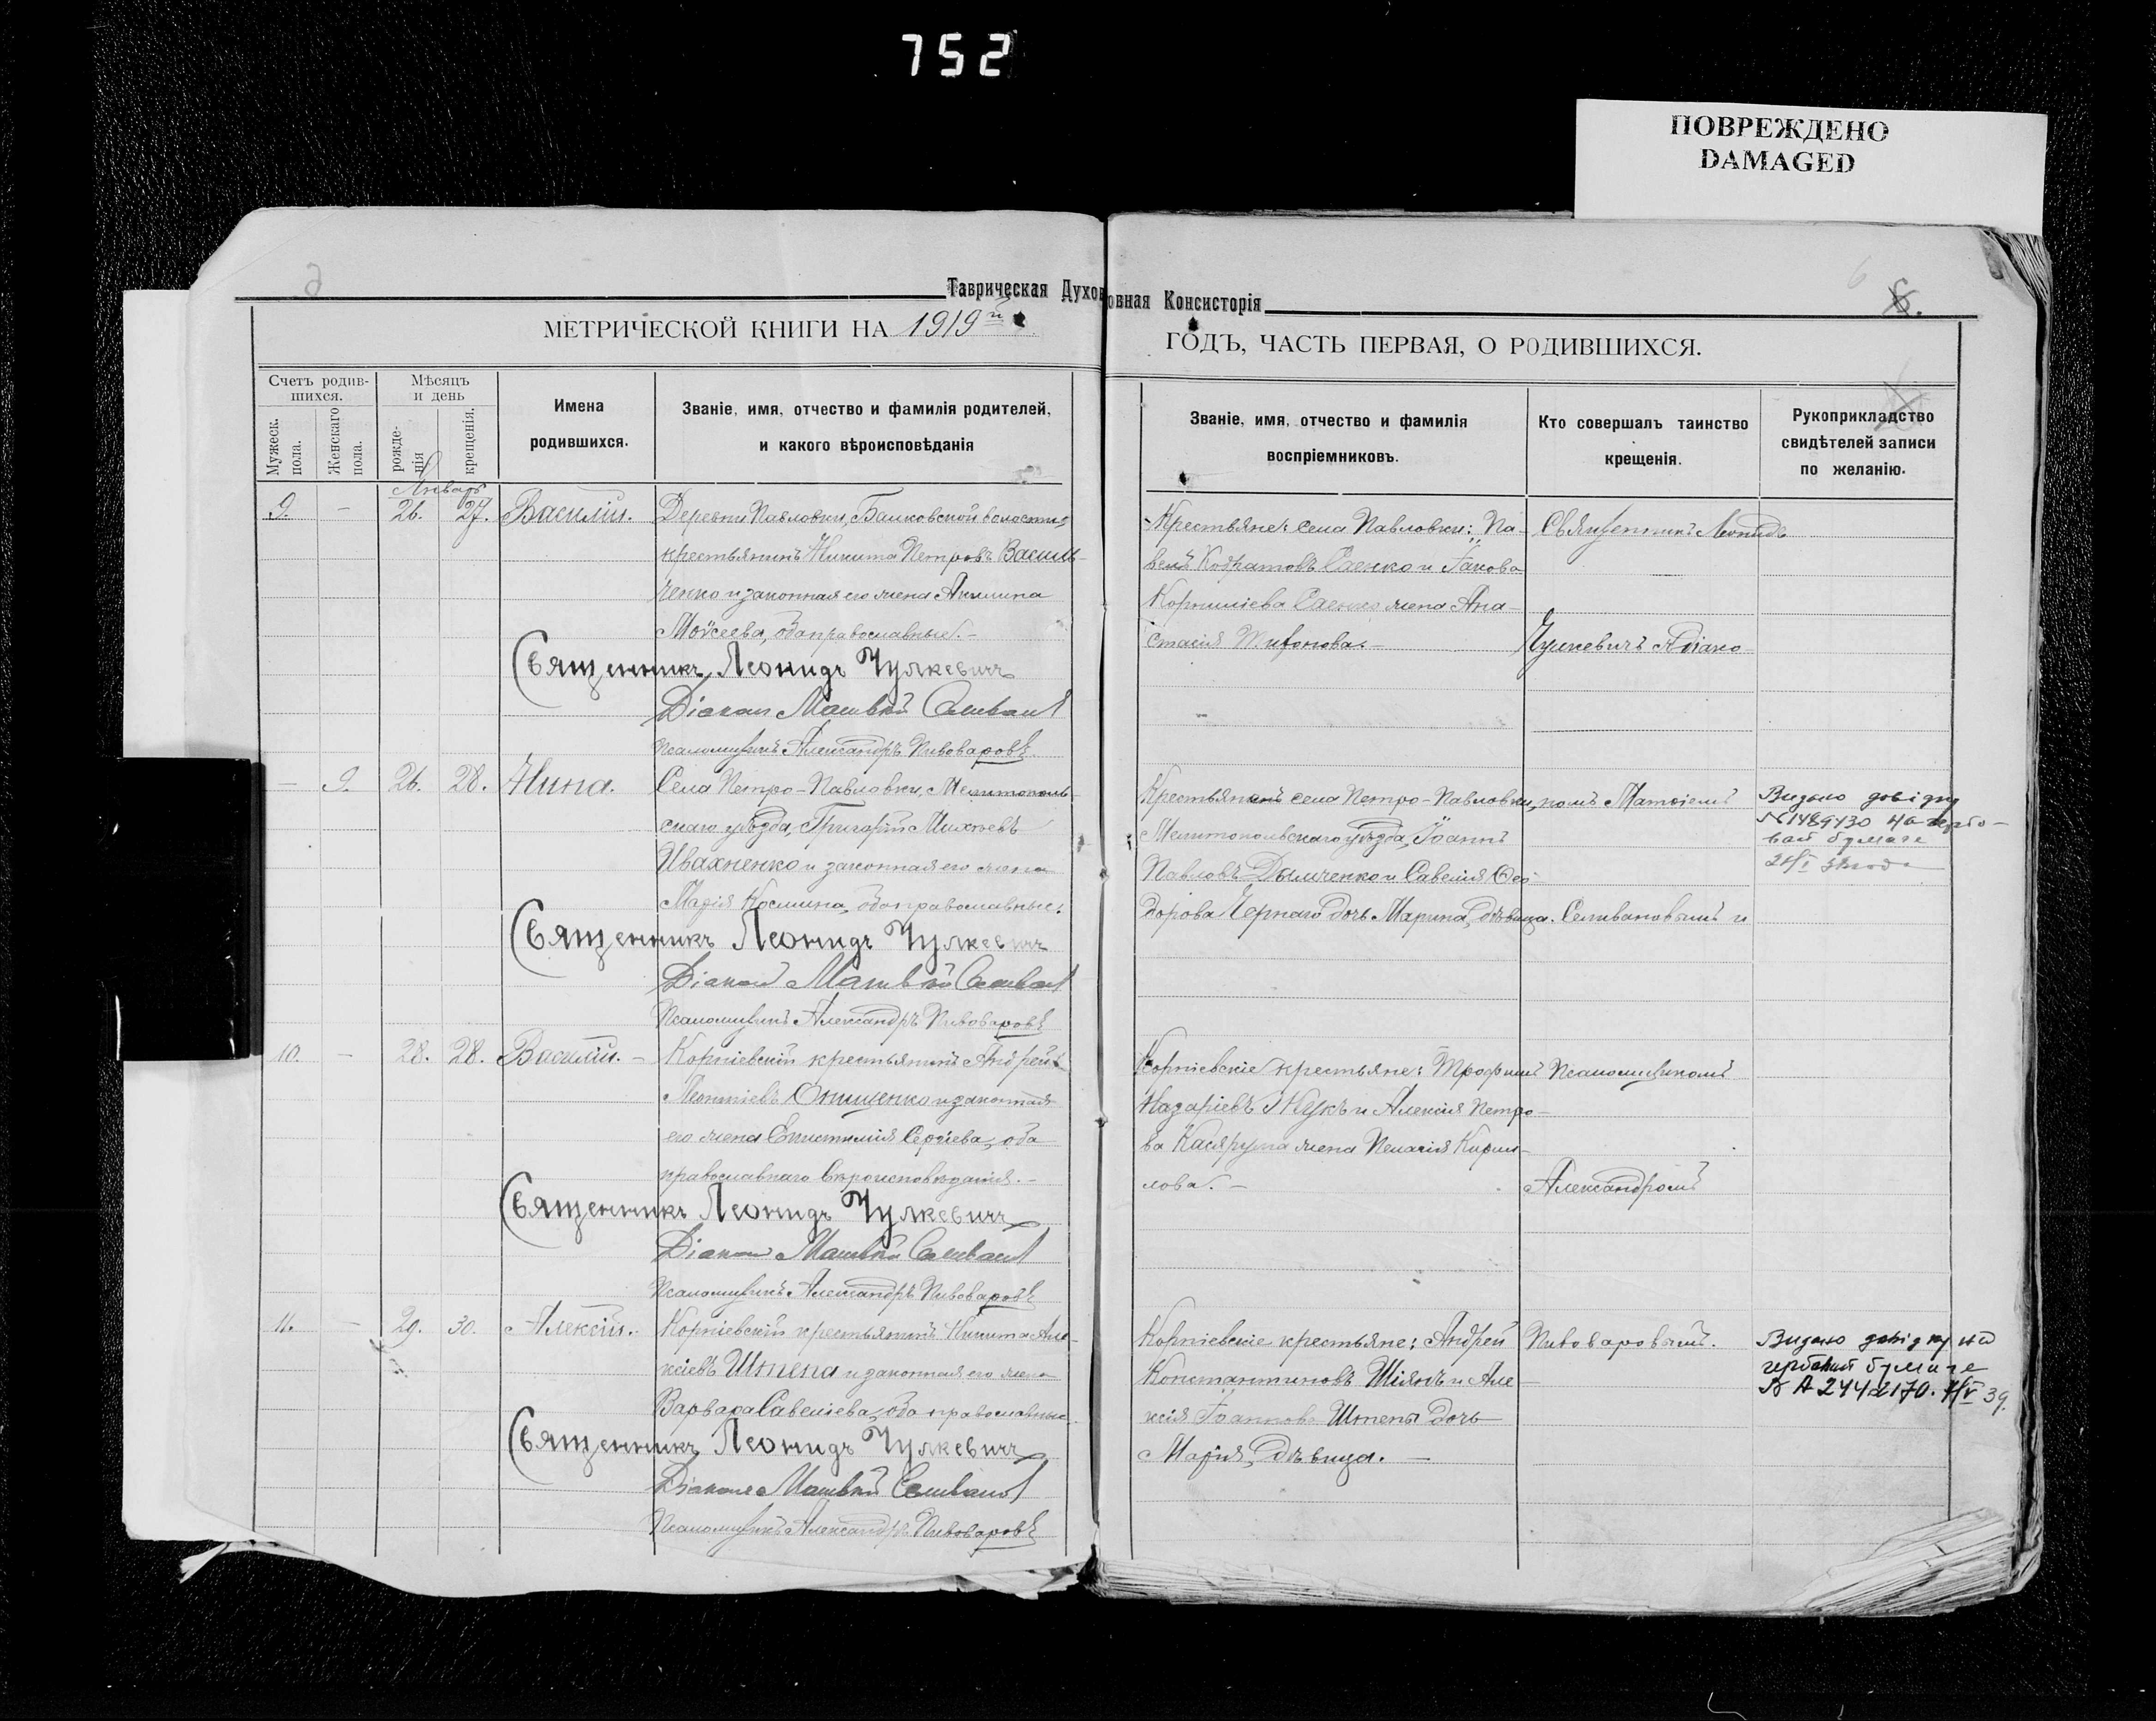 752
ПОВРЕЖДЕНО
DAMAGED
Таврическая Духовная Консисторія
6.
МЕТРИЧЕСКОЙ КНИГИ НА 1919й
ГОДЪ, ЧАСТЬ ПЕРВАЯ, О РОДИВШИХСЯ.
Счетъ родив-
шихся.
Мужеск. пола.
Женскаго пола.
Мѣсяцъ
и день
рожде-
нія
крещенія.
Имена
родившихся.
Званіе, имя, отчество и фамилія родителей,
и какого вѣроисповѣданія
Званіе, имя, отчество и фамилія
воспріемниковъ.
Кто совершалъ таинство
крещенія.
Рукоприкладство
свидѣтелей записи
по желанію.
Январь
9. - 26. 27. Василій.
Деревни Павловки, волости,
крестьянинъ Никита Петровъ Василь-
ченко и законная его жена Акилина
Моѵсеева, оба православные. -
Священникъ Леонидъ Чулкевичъ
Діаконъ Матвѣй Селиванов
Псаломщикъ Александръ Пивоваровъ
Крестьяне: села Павловки: Па-
велъ Кодратовъ Саенко и Іакова
Корниліева Саенко жена Ана-
стасія Тихонова. -
Священникъ Леонидъ
Чулкевичъ с діако-
- 9. 26. 28. Нина.
Села Петро-Павловки, Мелитополь-
скаго уѣзда, Григорій Михѣевъ
Ивахненко и законная его жена
Марія Космина, оба православные.
Священникъ Леонидъ Чулкевичъ
Діаконъ Матвѣй Селиванов
Псаломщикъ Александръ Пивоваровъ
Крестьяне села Петро-Павловки,
Мелитопольскаго уѣзда, Іоаннъ
Павловъ Дымченко и Савелія Ѳео-
дорова Чернаго дочь Марина, дѣвица.
номъ Матѳіемъ
Селивановымъ и
Видано довідку
N 1489430 на гербо-
вой бумаге
10. - 28. 28. Василій. -
Корніевскій крестьянинъ Андрей
Леонтіевъ Онищенко и законная
его жена Епистимія Сергіева, оба
православнаго вѣроисповѣданія. -
Священникъ Леонидъ Чулкевичъ
Діаконъ Матвѣй Селиванов
Псаломщикъ Александръ Пивоваровъ
Корніевскіе крестьяне: Трофимъ
Назаріевъ Жукъ и Алексія Петро-
ва Касярума жена Пелагія Кирил-
лова. -
Псаломщикомъ
Александромъ
11. - 29. 30. Алексій.
Корніевскій крестьянинъ Никита Але-
ксіевъ Штепа и законная его жена
Варвара Савеліева, оба православные.
Священникъ Леонидъ Чулкевичъ
Діаконъ Матвѣй Селиванов
Псаломщикъ Александръ Пивоваровъ
Корніевскіе крестьяне: Андрей
Константиновъ Шіянъ и Але-
ксія Іоаннова Штепы дочь
Марія, дѣвица. -
Пивоваровымъ.
Видано довідку на
гербовой бумаге
39.